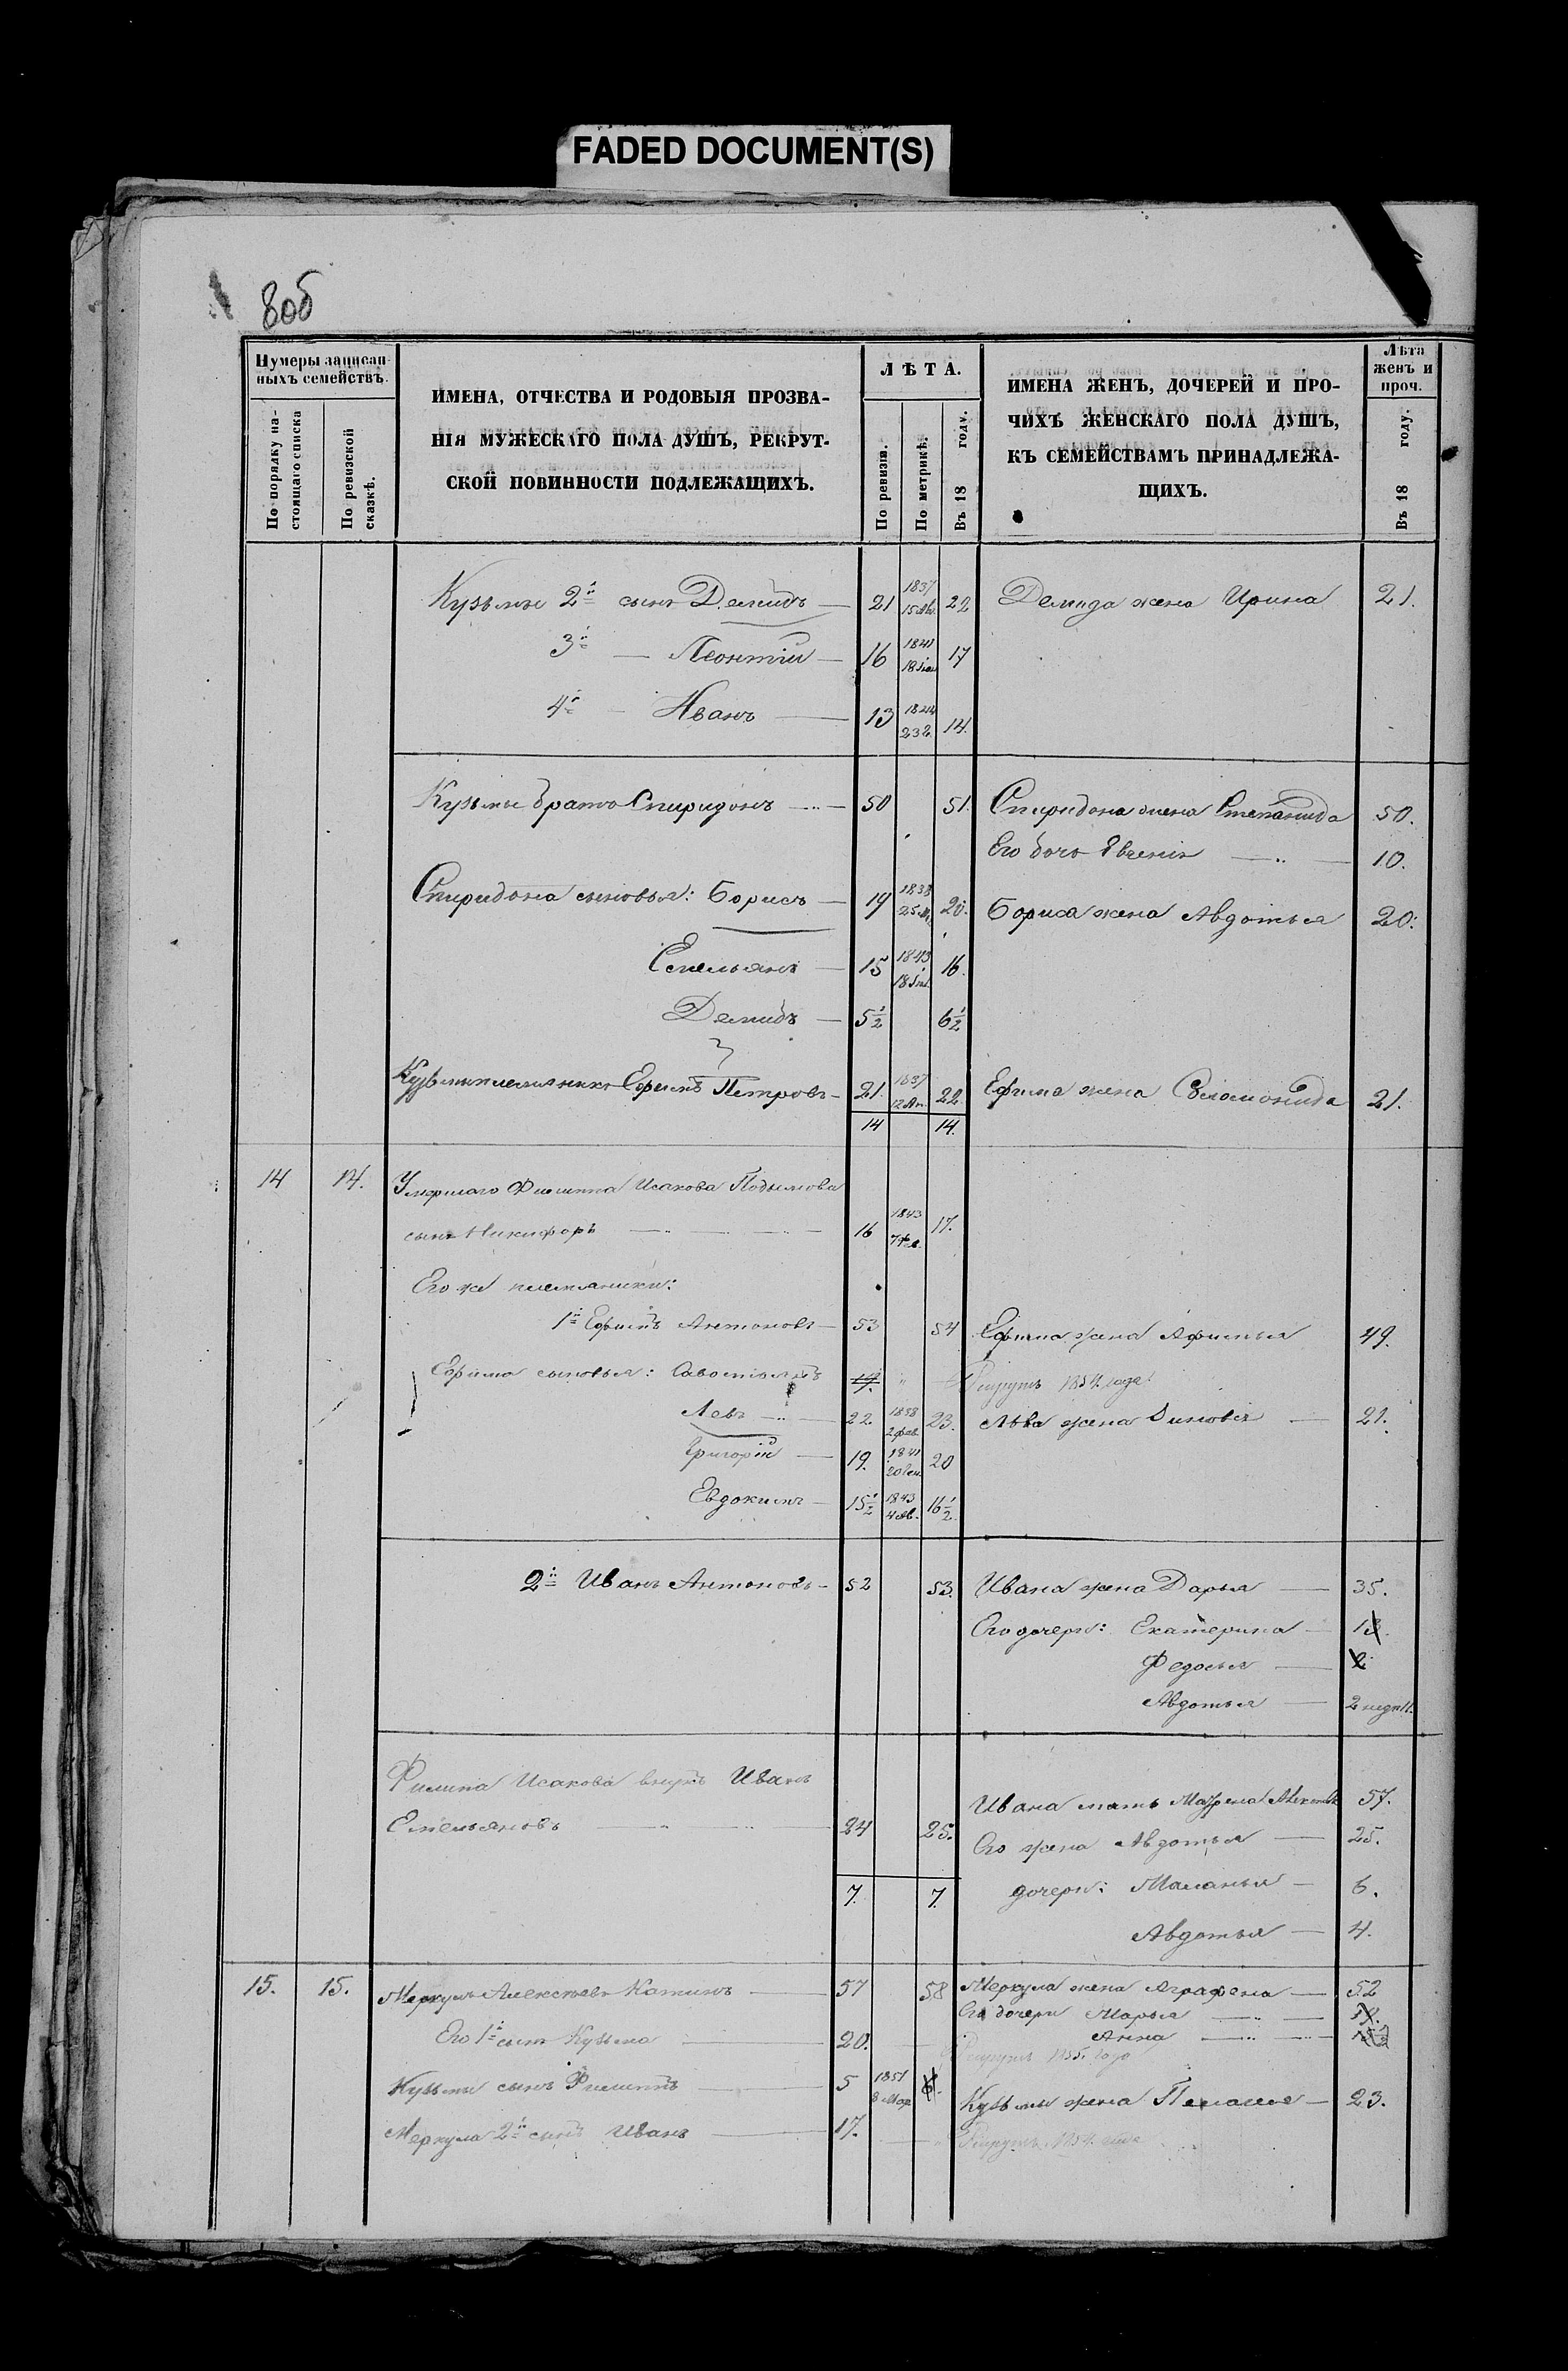 FADED DOCUMENT(S)
8об
Нумеры записан-
ныхъ семействъ.
По порядку на-
стоящаго списка
По ревизской
сказкѣ.
ИМЕНА, ОТЧЕСТВА И РОДОВЫЯ ПРОЗВА-
НІЯ МУЖЕСКАГО ПОЛА ДУШЪ, РЕКРУТ-
СКОЙ ПОВИННОСТИ ПОДЛЕЖАЩИХЪ.
ЛѢТА.
По ревизіи.
По метрикѣ.
Въ 18 году.
ИМЕНА ЖЕНЪ, ДОЧЕРЕЙ И ПРО-
ЧИХЪ ЖЕНСКАГО ПОЛА ДУШЪ,
КЪ СЕМЕЙСТВАМЪ ПРИНАДЛЕЖА-
ЩИХЪ.
Лѣта
женъ и
проч.
Въ 18 году.
Кузьмы 2й сынъ Демидъ — 21 1837 22 Демида жена Ирина 21.
3й — Леонтій — 16 1841 17
4й — Иванъ — 13 1844 14.
Кузьмы братъ Спиридонъ — 50 51. Спиридона жена Степанида 50.
Его дочь Евгенія — 10.
Спиридона сыновья: Борисъ — 19 1838 20. Бориса жена Авдотья 20.
Емельянъ — 15 1843 16.
Демидъ — 5½ 6½
Кузьмы племянникъ Ефимъ Петровъ — 21. 1837 22. Ефима жена Соломонида 21.
14 14.
14 14. Умершаго Филиппа Исакова Подымова
сынъ Никифоръ — 16 1843 7 Фев. 17.
Его же племянники:
1й Ефимъ Антоновъ — 53 54 Ефима жена Афимья 49.
Ефима сыновья: Савостьянъ 19. Рекрутъ 1854 года.
Левъ — 22. 1838 2 фев. 23. Льва жена Зиновія — 21.
Григорій — 19. 1841 20
Евдокимъ — 15½ 1843 16½
2й Иванъ Антоновъ — 52 53. Ивана жена Дарья — 35.
Его дочери: Екатерина — 13.
Федосья — 2
Авдотья — 2 недѣл.
Филипа Исакова внукъ Иванъ
Емельяновъ — 24 25. Ивана мать Мавра 57.
Его жена Авдотья — 25.
7. 7. дочери: Маланья — 6.
Авдотья — 4.
15. 15. Меркулъ Алексѣевъ Катинъ — 57 58 Меркула жена Аграфена — 52
Его дочери Марья —
Анна —
Его 1й сынъ Кузьма — 20. Рекрутъ 1855 года
Кузьмы сынъ Филиппъ — 5 1851 8 Мар. 6. Кузьмы жена Пелагея — 23.
Меркула 2й сынъ Иванъ — 17. Рекрутъ 1854 года